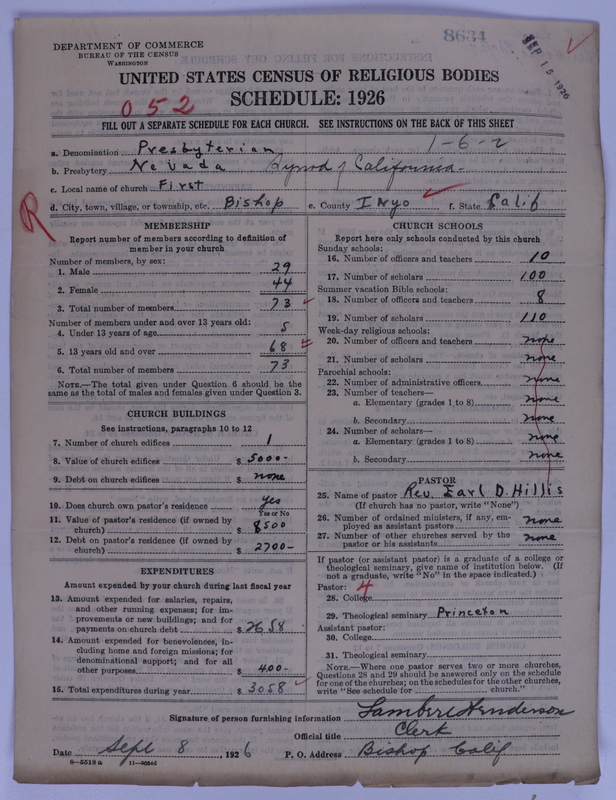 8634
SEP 15 1926
DEPARTMENT OF COMMERCE
BUREAU OF THE CENSUS
WASHINGTON
UNITED STATES CENSUS OF RELIGIOUS BODIES
SCHEDULE: 1926
052
FILL OUT A SEPARATE SCHEDULE FOR EACH CHURCH. SEE INSTRUCTIONS ON THE BACK OF THIS SHEET
1-6-2
a. Denomination Presbyterian
b. Presbytery Nevada Synod of California
c. Local name of church First
d. City, town, village, or township, etc. Bishop e. County Inyo f. State Calif
R
MEMBERSHIP
Report number of members according to definition of
member in your church
Number of members, by sex:
1. Male 29
2. Female 44
3. Total number of members 73
Number of members under and over 13 years old:
4. Under 13 years of age 5
5. 13 years old and over 68
6. Total number of members 73
NOTE.—The total given under Question 6 should be the
same as the total of males and females given under Question 3.
CHURCH BUILDINGS
See instructions, paragraphs 10 to 12
7. Number of church edifices 1
8. Value of church edifices $ 5000-
9. Debt on church edifices $ none
10. Does church own pastor's residence yes
Yes or No
11. Value of pastor's residence (if owned by
church) $ 8500
12. Debt on pastor's residence (if owned by
church) $ 2700-
EXPENDITURES
Amount expended by your church during last fiscal year
13. Amount expended for salaries, repairs,
and other running expenses; for im-
provements or new buildings; and for
payments on church debt $ 2658
14. Amount expended for benevolences, in-
cluding home and foreign missions; for
denominational support; and for all
other purposes $ 400-
15. Total expenditures during year $ 3058
CHURCH SCHOOLS
Report here only schools conducted by this church
Sunday schools:
16. Number of officers and teachers 10
17. Number of scholars 100
Summer vacation Bible schools:
18. Number of officers and teachers 8
19. Number of scholars 110
Week-day religious schools:
20. Number of officers and teachers none
21. Number of scholars none
Parochial schools:
22. Number of administrative officers none
23. Number of teachers—
a. Elementary (grades 1 to 8) none
b. Secondary none
24. Number of scholars—
a. Elementary (grades 1 to 8) none
b. Secondary none
PASTOR
25. Name of pastor Rev. Earl D. Hillis
(If church has no pastor, write "None")
26. Number of ordained ministers, if any, em-
ployed as assistant pastors none
27. Number of other churches served by the
pastor or his assistants none
If pastor (or assistant pastor) is a graduate of a college or
theological seminary, give name of institution below. (If
not a graduate, write "No" in the space indicated.)
Pastor: 4
28. College
29. Theological seminary Princeton
Assistant pastor:
30. College
31. Theological seminary
NOTE.—Where one pastor serves two or more churches,
Questions 28 and 29 should be answered only on the schedule
for one of the churches; on the schedules for the other churches,
write "See schedule for church."
Signature of person furnishing information Henderson
Official title Clerk
Date Sept 8, 1926 P. O. Address Bishop Calif
8-5518a 11-